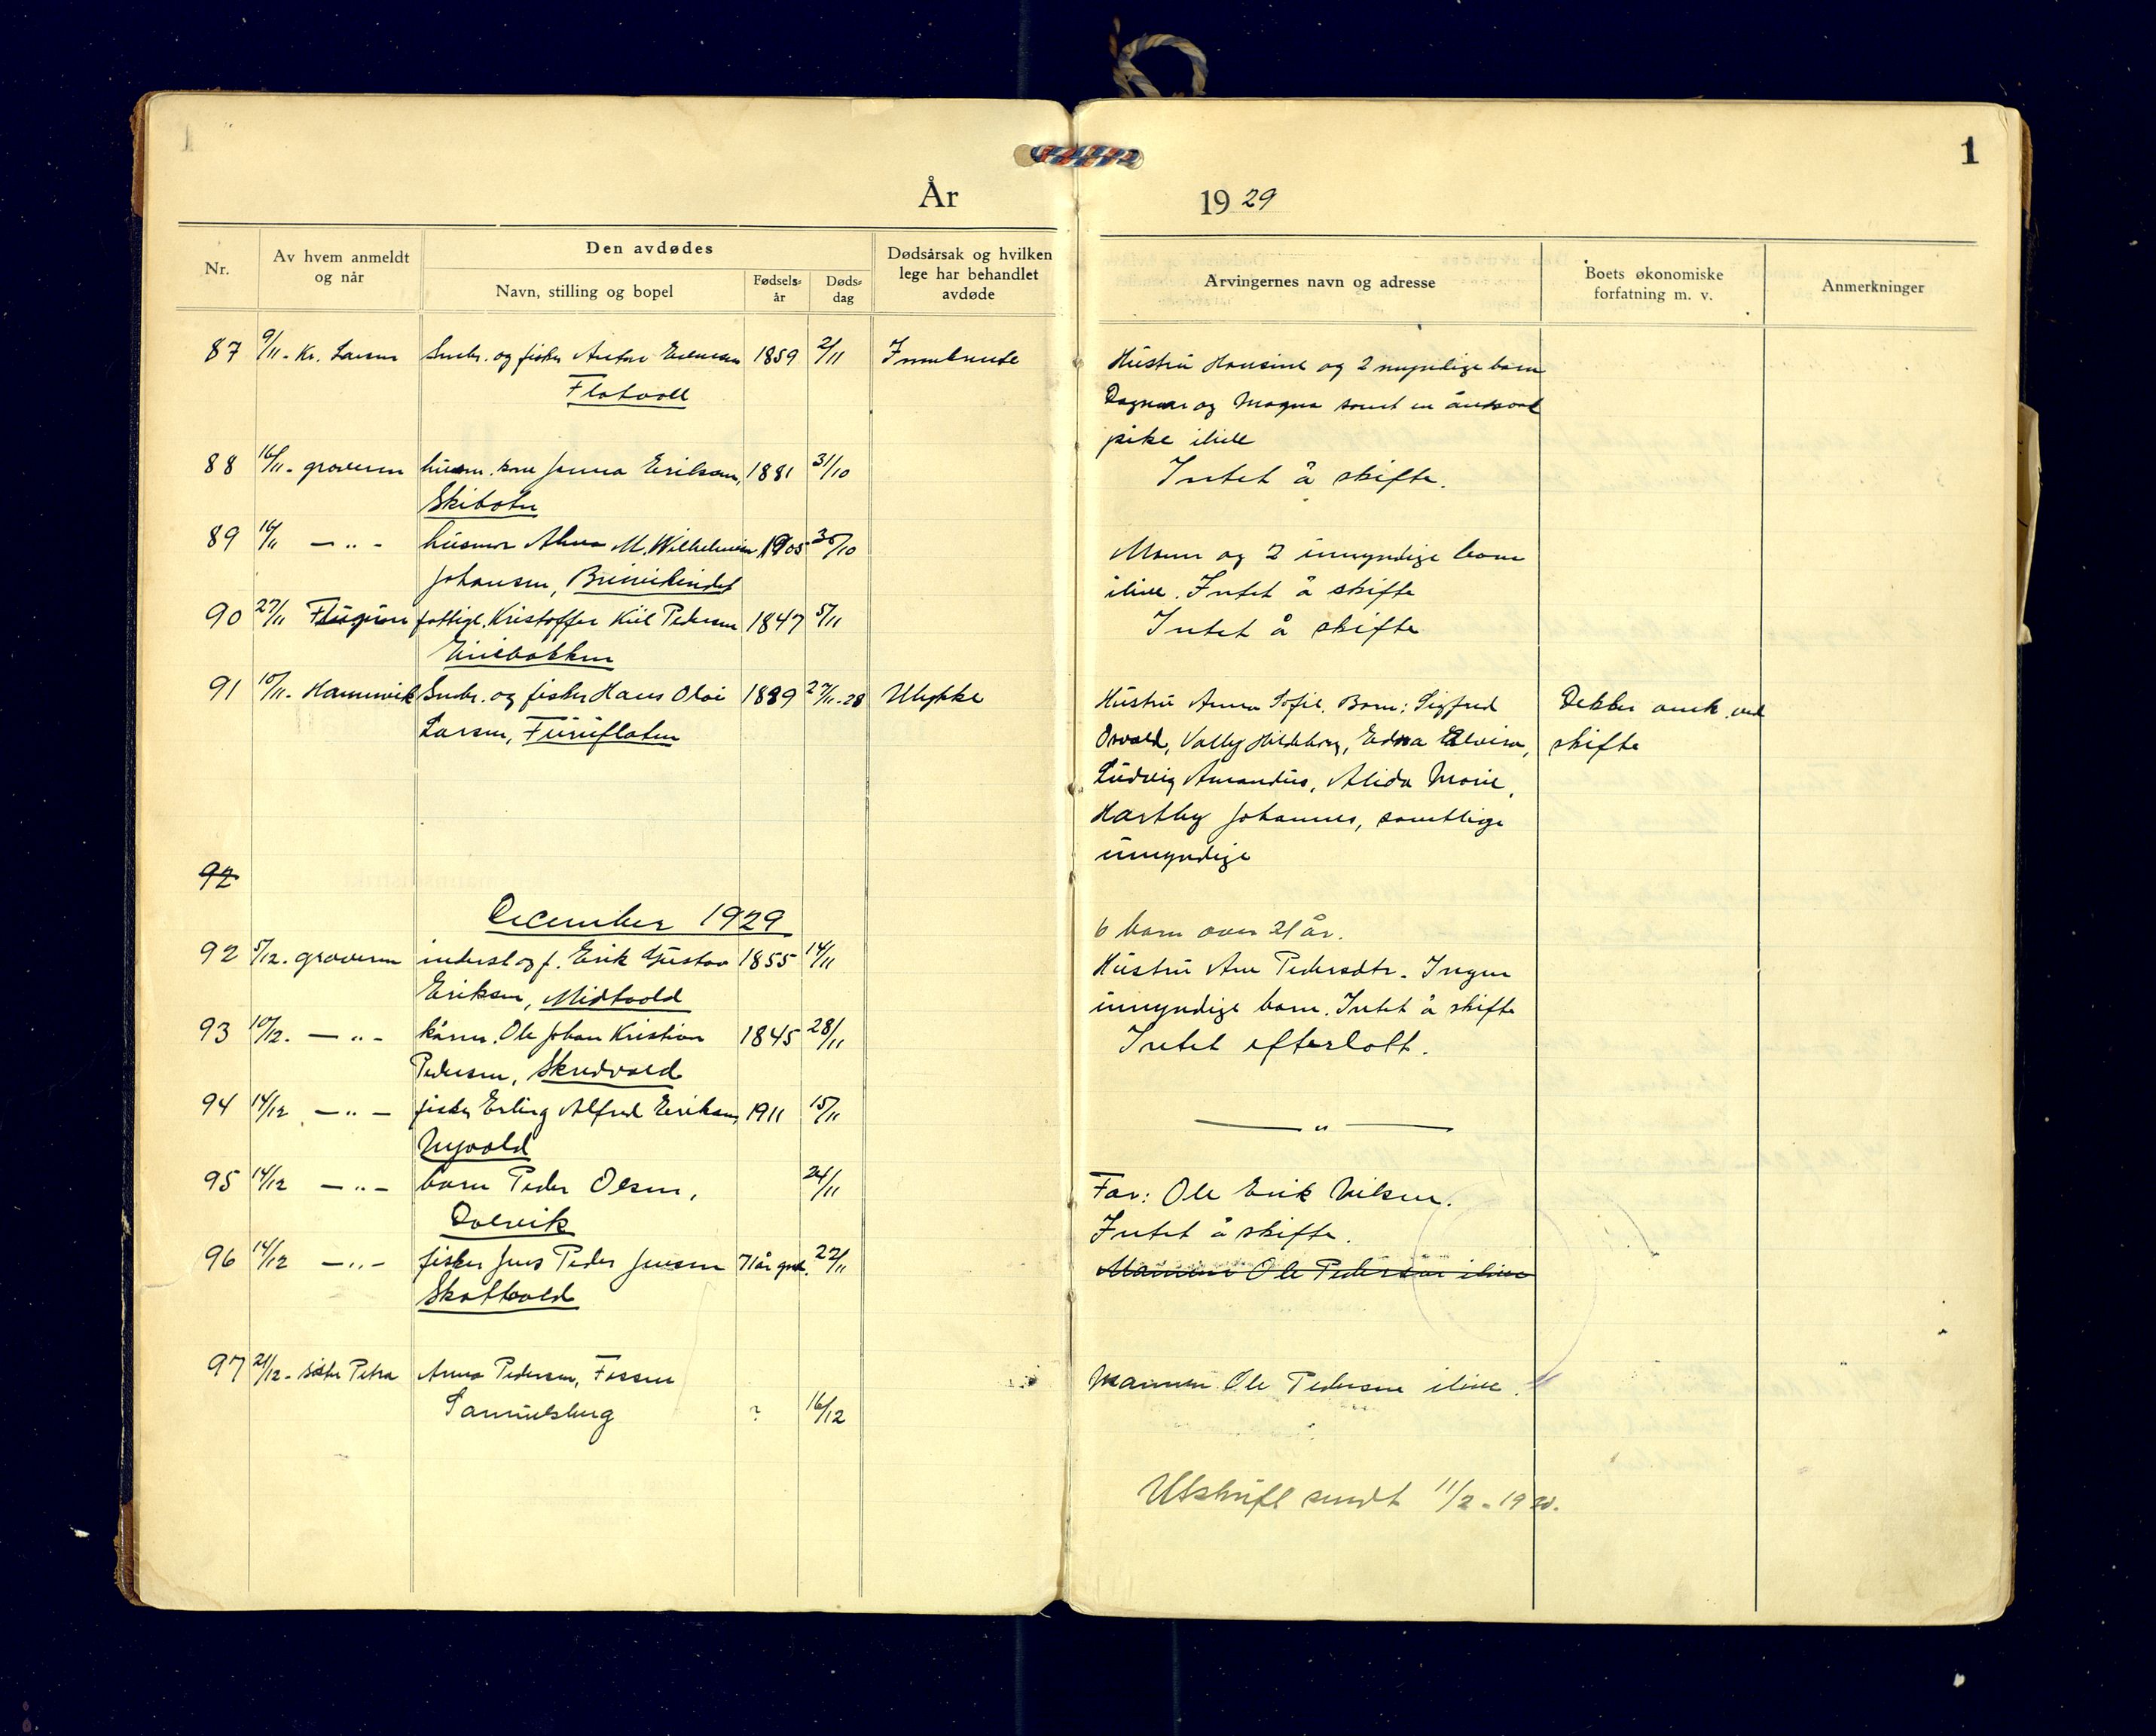 1
1
År
19 29
Nr.
Av hvem anmeldt
og når
Den avdødes
Navn, stilling og bopel
Fødsels-
år
Døds-
dag
Dødsårsak og hvilken
lege har behandlet
avdøde
Arvingernes navn og adresse
Boets økonomiske
forfatning m. v.
Anmerkninger
87 9/11. Kr. Larsen Småbr. og fisker Anton 1859 2/11
Flatvoll
Hustru Hansine og 2 myndige barn
Dagmar og Magna samt en
pike ilive
88 16/11. graveren husm. kone Janna Eriksen, 1881 31/10
Skibotn
Intet å skifte.
89 16/11 — „ - husmor M. Wilhelmine 1905 30/10
Johansen,
Mann og 2 umyndige barn
ilive. Intet å skifte
90 27/11 fattigl. Kristoffer Kiil Pedersen 1847 5/11
Intet å skifte
91 10/11. Hamnvik Småbr. og fisker Hans Olai 1889 27/11-28 Ulykke
Larsen, Furuflaten
Hustru Anna Sofie. Barn: Sigfred
Osvald, Valby Hildeborg, Edna Elvira,
Ludvig Amandus, Alida Marie,
Hartby Johannes, samtlige
umyndige
Dekker omk. ved
skifte
92
December 1929
92 5/12. graveren inderst og f. Erik Gustav 1855 14/11
Eriksen, Midtvold
6 barn over 21 år.
Hustru Ane Pedersdtr. Ingen
umyndige barn. Intet å skifte
93 10/12. — „ - kårm. Ole Johan Kristian 1845 28/11
Pedersen, Skredvold
Intet efterlatt.
94 14/12 — „ — fisker Erling Alfred Eriksen, 1911 15/11
Nyvold
— „ —
95 14/12 — „ - barn Peder Olsen, 24/11
Dalvik
Far: Ole Erik Nilsen.
Intet å skifte.
96 14/12 — „ - fisker Jens Peder Jensen 71 år gml. 27/11
Skattvold
Mannen Ole Pedersen ilive
97 21/12. søster Petra Anna Pedersen, Fossen
Samuelsberg ? 16/12
Mannen Ole Pedersen ilive.
Utskrift sendt 11/2 - 1930.